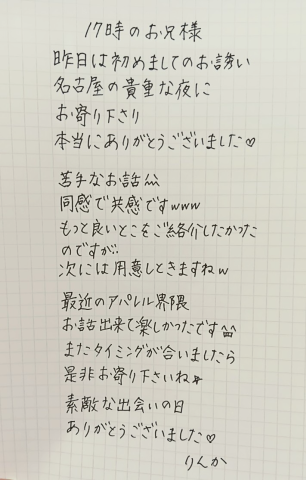 17時のお兄様
昨日は初めましてのお誘い
名古屋の貴重な夜に
お寄り下さり
本当にありがとうございました♡
苦手なお話^^
同感で共感ですwww
もっと良いとこをご紹介したかった
のですが‥
次には用意しときますねw
最近のアパレル界隈
お話出来て楽しかったです^^
またタイミングが合いましたら
是非お寄り下さいね☆
素敵な出会いの日
ありがとうございました♡
りんか